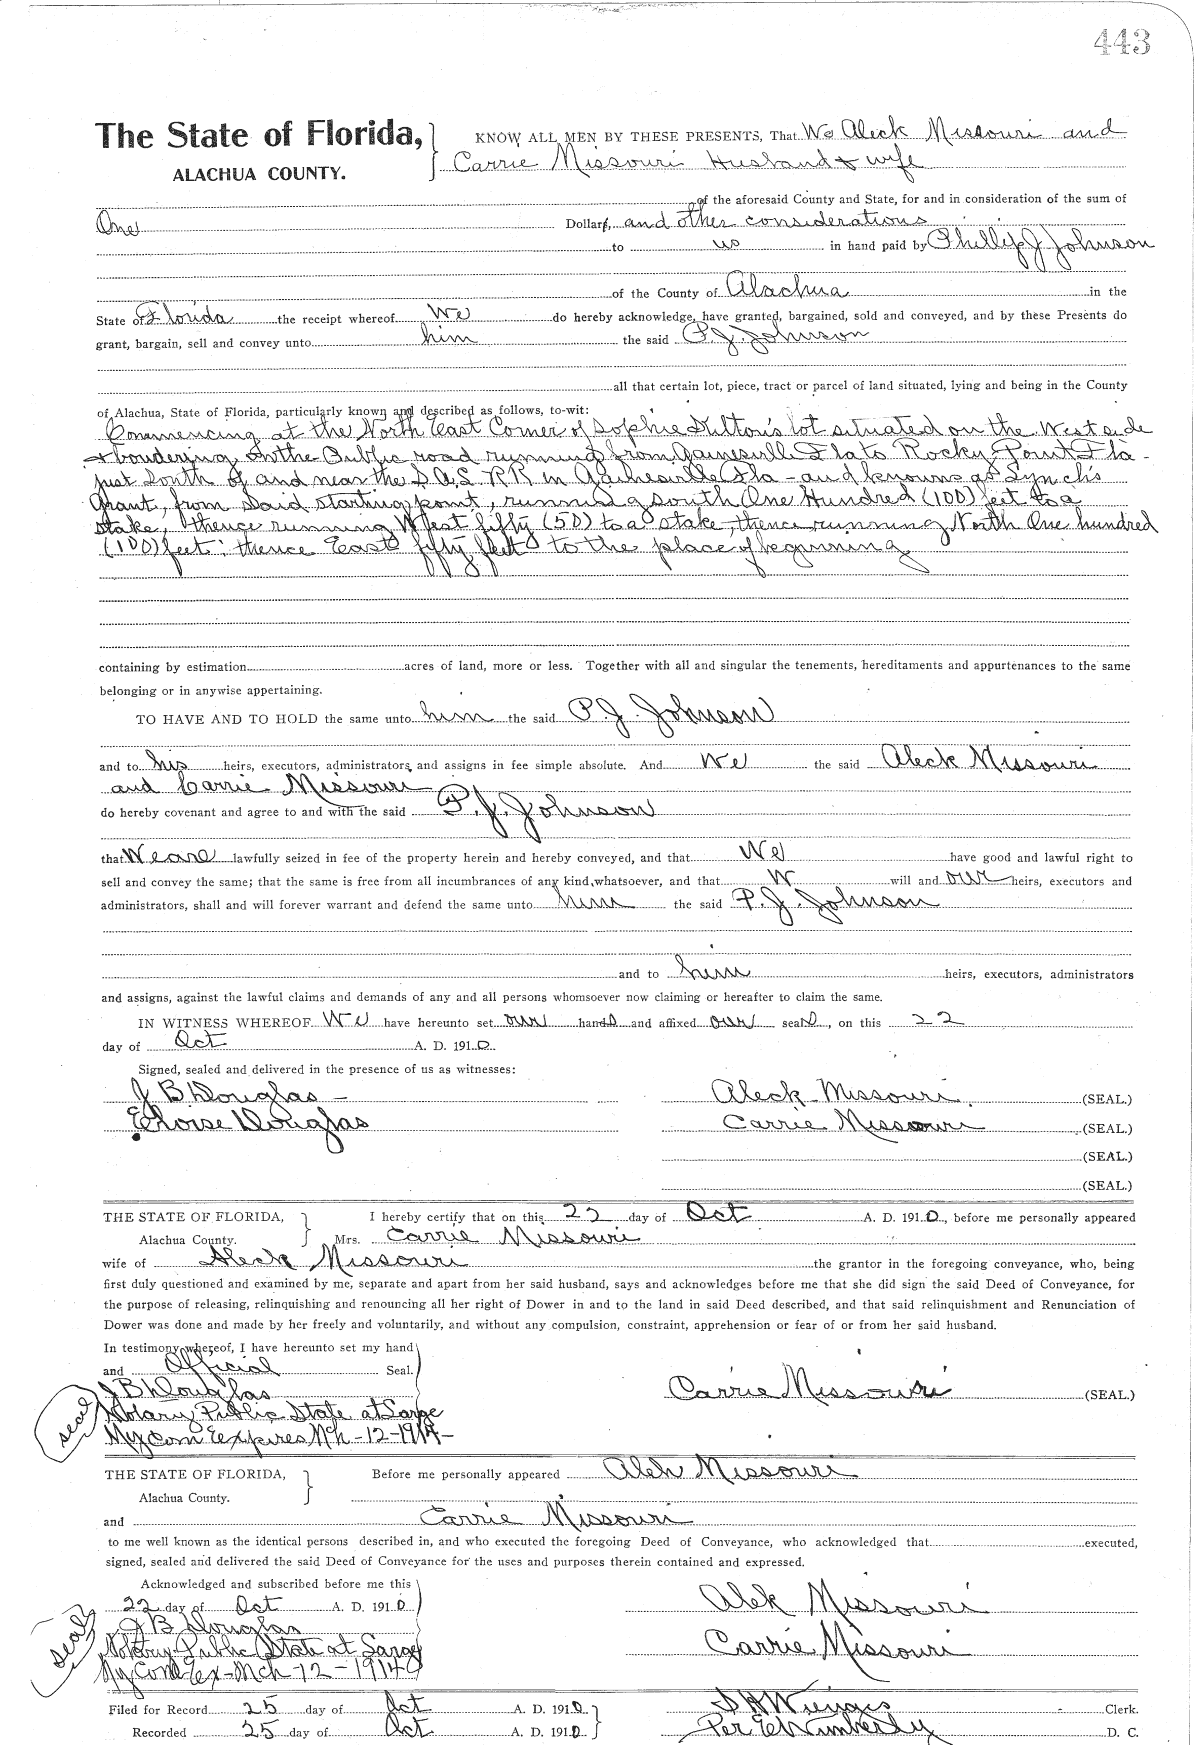 443
The State of Florida, KNOW ALL MEN BY THESE PRESENTS, That We Aleck Missouri and
ALACHUA COUNTY. Carrie Missouri Husband & wife
of the aforesaid County and State, for and in consideration of the sum of
One Dollar, and other considerations
to us in hand paid by Phillip J Johnson
of the County of Alachua in the
State of Florida the receipt whereof We do hereby acknowledge, have granted, bargained, sold and conveyed, and by these Presents do
grant, bargain, sell and convey unto him the said P. J. Johnson
all that certain lot, piece, tract or parcel of land situated, lying and being in the County
of Alachua, State of Florida, particularly known and described as follows, to-wit:
Commencing at the North East Corner of Sophie lot situated on the West side
& bordering on the Public road running from Gainesville Fla to Rocky Point Fla -
just South of and near the S.A.L RR in Gainesville Fla - and known as Lynch's
Grant, from said starting point, running South One Hundred (100) feet to a
stake, thence running West fifty (50) to a stake, thence running North One hundred
(100) feet; thence East fifty feet to the place of beginning
containing by estimation acres of land, more or less. Together with all and singular the tenements, hereditaments and appurtenances to the same
belonging or in anywise appertaining.
TO HAVE AND TO HOLD the same unto him the said P. J. Johnson
and to his heirs, executors, administrators, and assigns in fee simple absolute. And We the said Aleck Missouri
and Carrie Missouri
do hereby covenant and agree to and with the said P. J. Johnson
that We are lawfully seized in fee of the property herein and hereby conveyed, and that We have good and lawful right to
sell and convey the same; that the same is free from all incumbrances of any kind whatsoever, and that W will and our heirs, executors and
administrators, shall and will forever warrant and defend the same unto him the said P. J. Johnson
and to him heirs, executors, administrators
and assigns, against the lawful claims and demands of any and all persons whomsoever now claiming or hereafter to claim the same.
IN WITNESS WHEREOF We have hereunto set our hands and affixed our seals, on this 22
day of Oct A. D. 1910
Signed, sealed and delivered in the presence of us as witnesses:
J B Douglas - Aleck Missouri (SEAL.)
Eloise Douglas Carrie Missouri (SEAL.)
(SEAL.)
(SEAL.)
THE STATE OF FLORIDA, I hereby certify that on this 22 day of Oct A. D. 1910, before me personally appeared
Alachua County. Mrs. Carrie Missouri
wife of Aleck Missouri the grantor in the foregoing conveyance, who, being
first duly questioned and examined by me, separate and apart from her said husband, says and acknowledges before me that she did sign the said Deed of Conveyance, for
the purpose of releasing, relinquishing and renouncing all her right of Dower in and to the land in said Deed described, and that said relinquishment and Renunciation of
Dower was done and made by her freely and voluntarily, and without any compulsion, constraint, apprehension or fear of or from her said husband.
In testimony whereof, I have hereunto set my hand
and Official Seal.
J B Douglas Carrie Missouri (SEAL.)
seal Notary Public State at Large
My Com Expires Mch-12-1914-
THE STATE OF FLORIDA, Before me personally appeared Aleck Missouri
Alachua County.
and Carrie Missouri
to me well known as the identical persons described in, and who executed the foregoing Deed of Conveyance, who acknowledged that executed,
signed, sealed and delivered the said Deed of Conveyance for the uses and purposes therein contained and expressed.
Acknowledged and subscribed before me this
22 day of Oct A. D. 1910 Alek Missouri
J B Douglas
seal Notary Public State at Large Carrie Missouri
My Com Ex-Mch-12-1914
Filed for Record 25 day of Oct A. D. 1910 S H Wienges Clerk.
Recorded 25 day of Oct A. D. 1910 Per E Wimberly D. C.